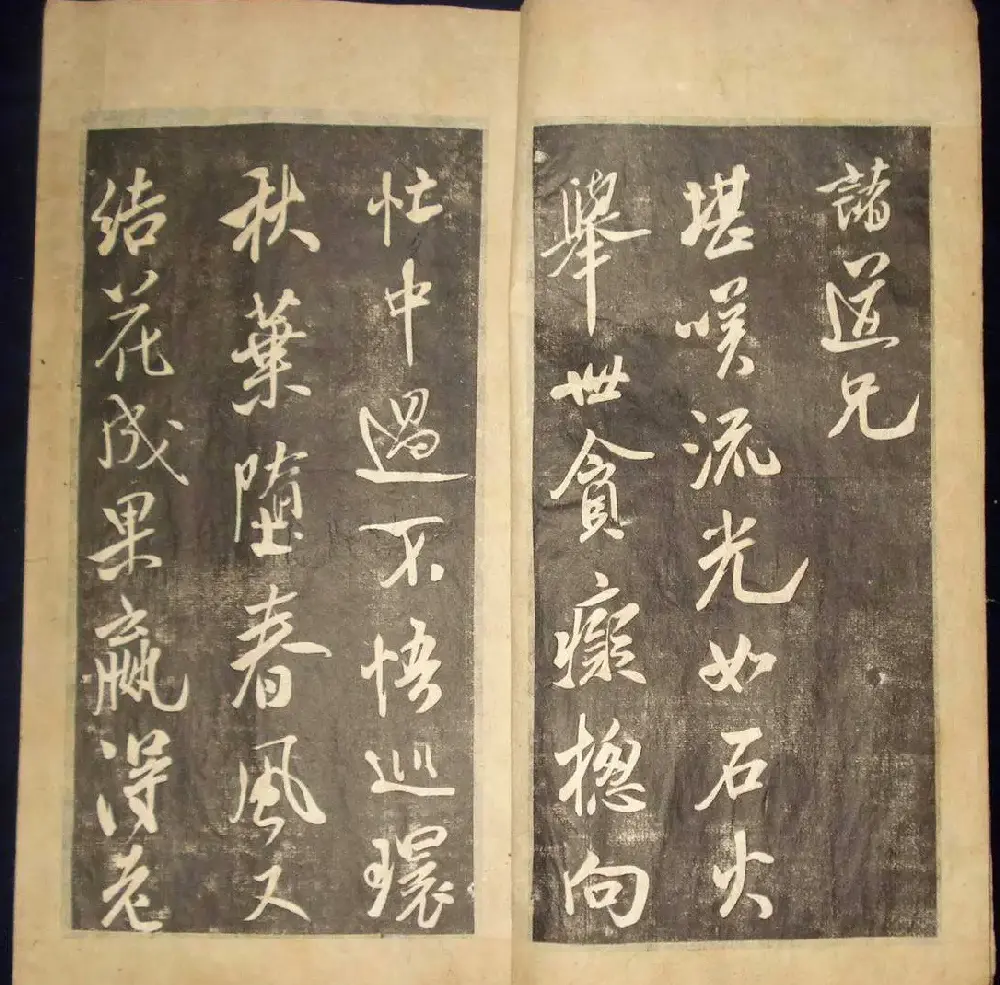 諸道兄
堪嘆流光如石火
舉世貪癡揔向
忙中過不悟巡環
秋葉墮春風又
結花成果贏得老